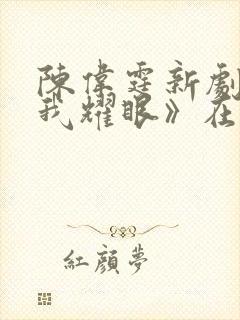 陳偉霆新劇
我耀眼》在
紅顏夢